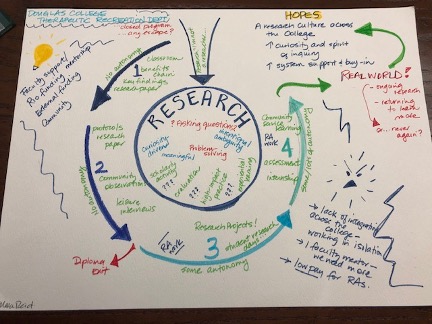 DOUGLAS COLLEGE
THERAPEUTIC RECREATION DEPT.
closed program
... any escape?
Faculty support/
Pro funding/mentorship
External funding
Community
no autonomy
classroom
benefits
chain
key findings
research paper
RESEARCH
? Asking questions?
curiosity
driven
meaningful
Problem-solving
scholarly
activity
???
evaluation
???
high-impact
practice
???
protocols
research
paper
2
community
observations
leisure
interviews
no autonomy
Diploma
exit
RA
work
3
Research Projects!
student research
days
some autonomy
Community
Service
learning
RA
work
4
assessment
internship
some/lots of autonomy
HOPES
A research culture across
the College
↑ curiosity and spirit
of inquiry
↑ system support + buy-in
REAL WORLD?
- ongoing
research
- returning
to learn
more
or... never
again?
→ lack of integration
across the
college -
working in isolation
→ 1 faculty mentor -
we need more
→ low pay for RAs.